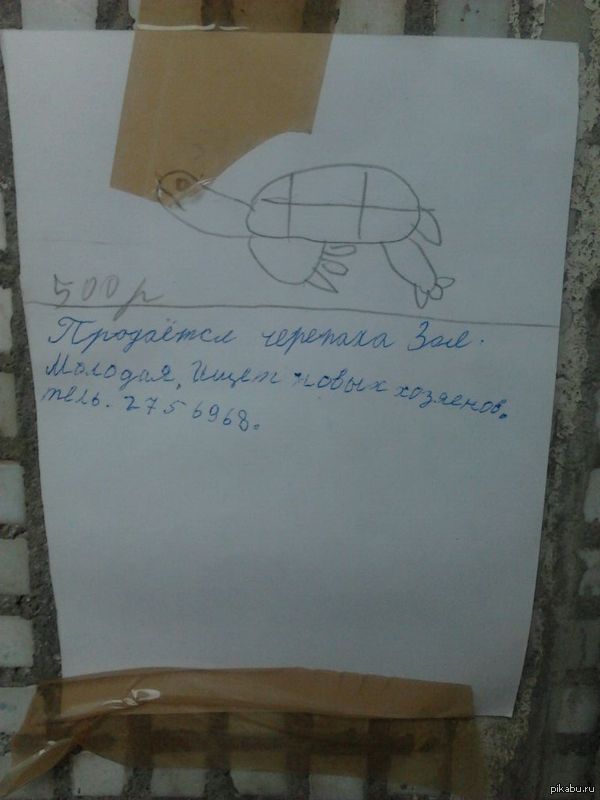 500р
Продаётся черепаха Зоя.
Молодая, ищет новых хозяенов.
тель. 2756968.
pikabu.ru